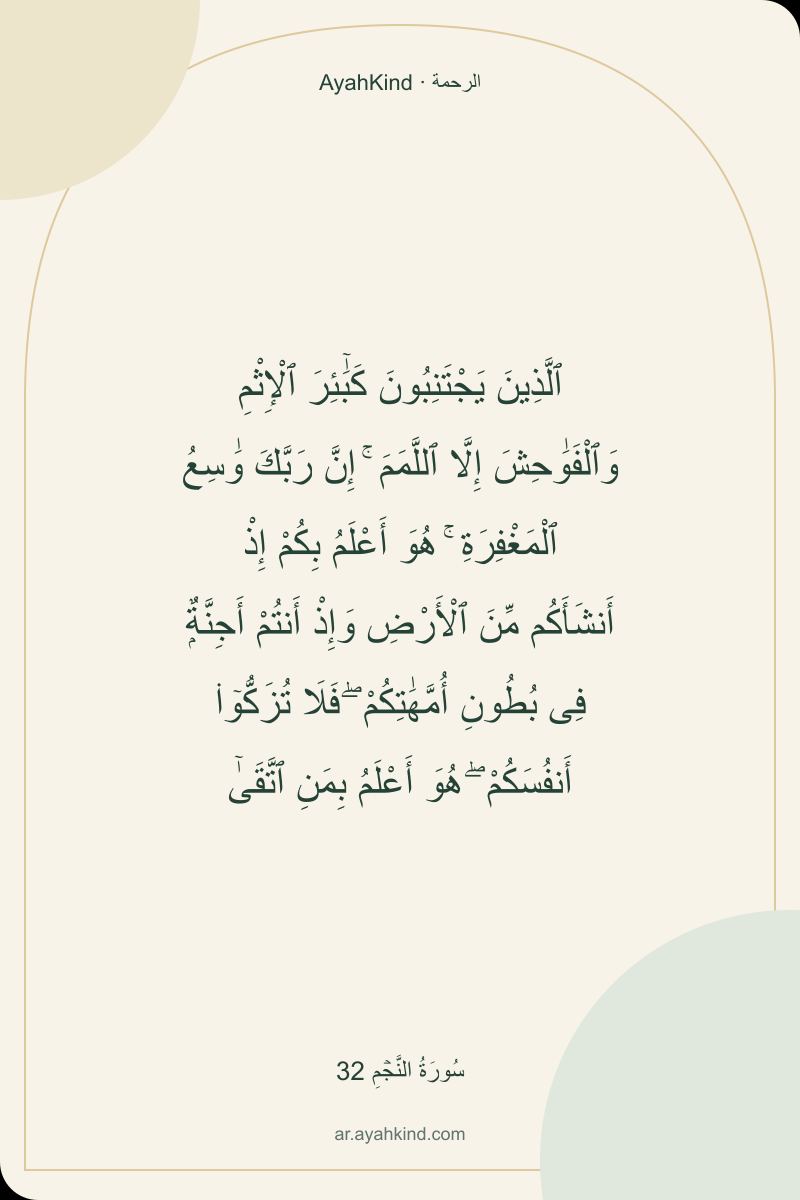 AyahKind · الرحمة
ٱلَّذِينَ يَجْتَنِبُونَ كَبَٰٓئِرَ ٱلْإِثْمِ
وَٱلْفَوَٰحِشَ إِلَّا ٱللَّمَمَ ۚ إِنَّ رَبَّكَ وَٰسِعُ
ٱلْمَغْفِرَةِ ۚ هُوَ أَعْلَمُ بِكُمْ إِذْ
أَنشَأَكُم مِّنَ ٱلْأَرْضِ وَإِذْ أَنتُمْ أَجِنَّةٌۭ
فِى بُطُونِ أُمَّهَٰتِكُمْ ۖ فَلَا تُزَكُّوٓا۟
أَنفُسَكُمْ ۖ هُوَ أَعْلَمُ بِمَنِ ٱتَّقَىٰٓ
سُورَةُ النَّجۡمِ 32
ar.ayahkind.com